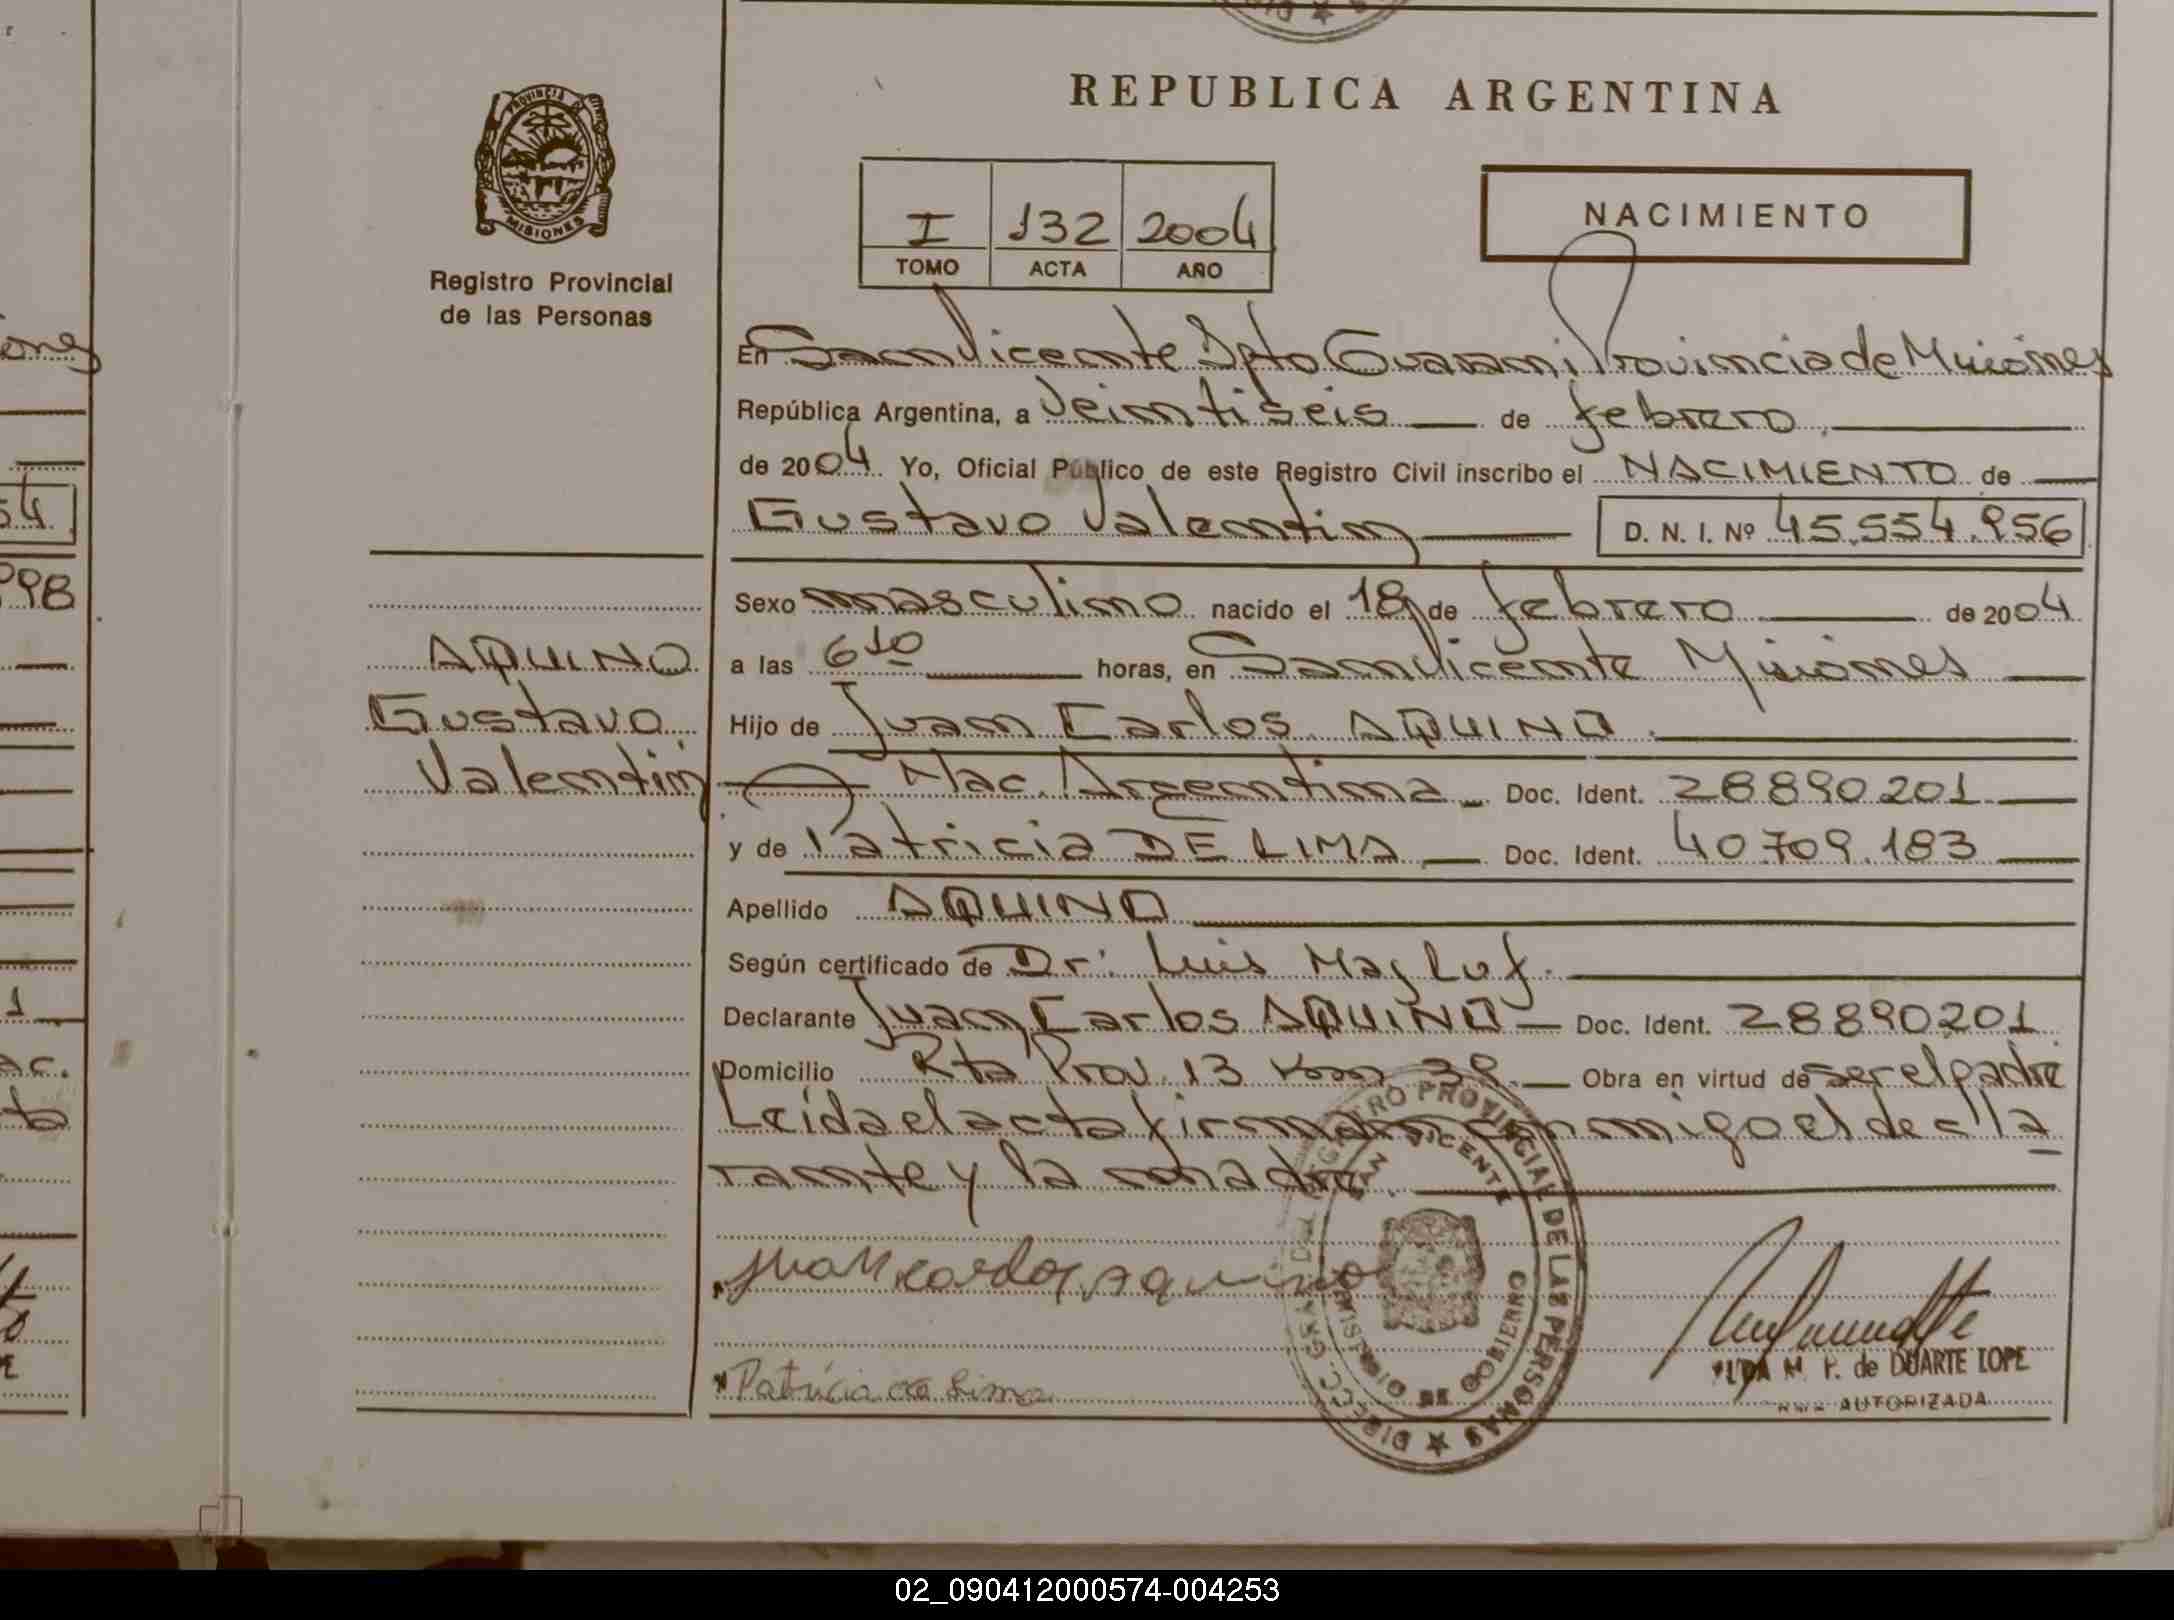 REPUBLICA ARGENTINA
PROVINCIA DE
MISIONES
Registro Provincial
de las Personas
I 132 2004
TOMO ACTA AÑO
NACIMIENTO
En San Vicente Dpto Guarani Provincia de Misiones
República Argentina, a Veintiseis de febrero.
de 2004 Yo, Oficial Público de este Registro Civil inscribo el NACIMIENTO de
Gustavo Valentin D. N. I. Nº 45.554.956
Sexo masculino nacido el 18 de febrero de 2004
AQUINO
a las 6 10 horas, en San Vicente Misiones
Gustavo
Hijo de Juan Carlos AQUINO.
Valentin
Nac. Argentina Doc. Ident. 28890201
y de Patricia DE LIMA Doc. Ident. 40.709.183
Apellido AQUINO
Según certificado de Dr. Luis
Declarante Juan Carlos AQUINO Doc. Ident. 28890201
Domicilio Rta Prov. 13 km 39. Obra en virtud de ser el padre
Leida el acta firman conmigo el decla
rante y la madre.
Juan carlos aquino
Patricia de Lima
DIRECC. GRAL. DEL REGISTRO PROVINCIAL DE LAS PERSONAS
SAN VICENTE
MINISTERIO DE GOBIERNO
M. P. de DUARTE LOPE
AUTORIZADA
02_090412000574-004253